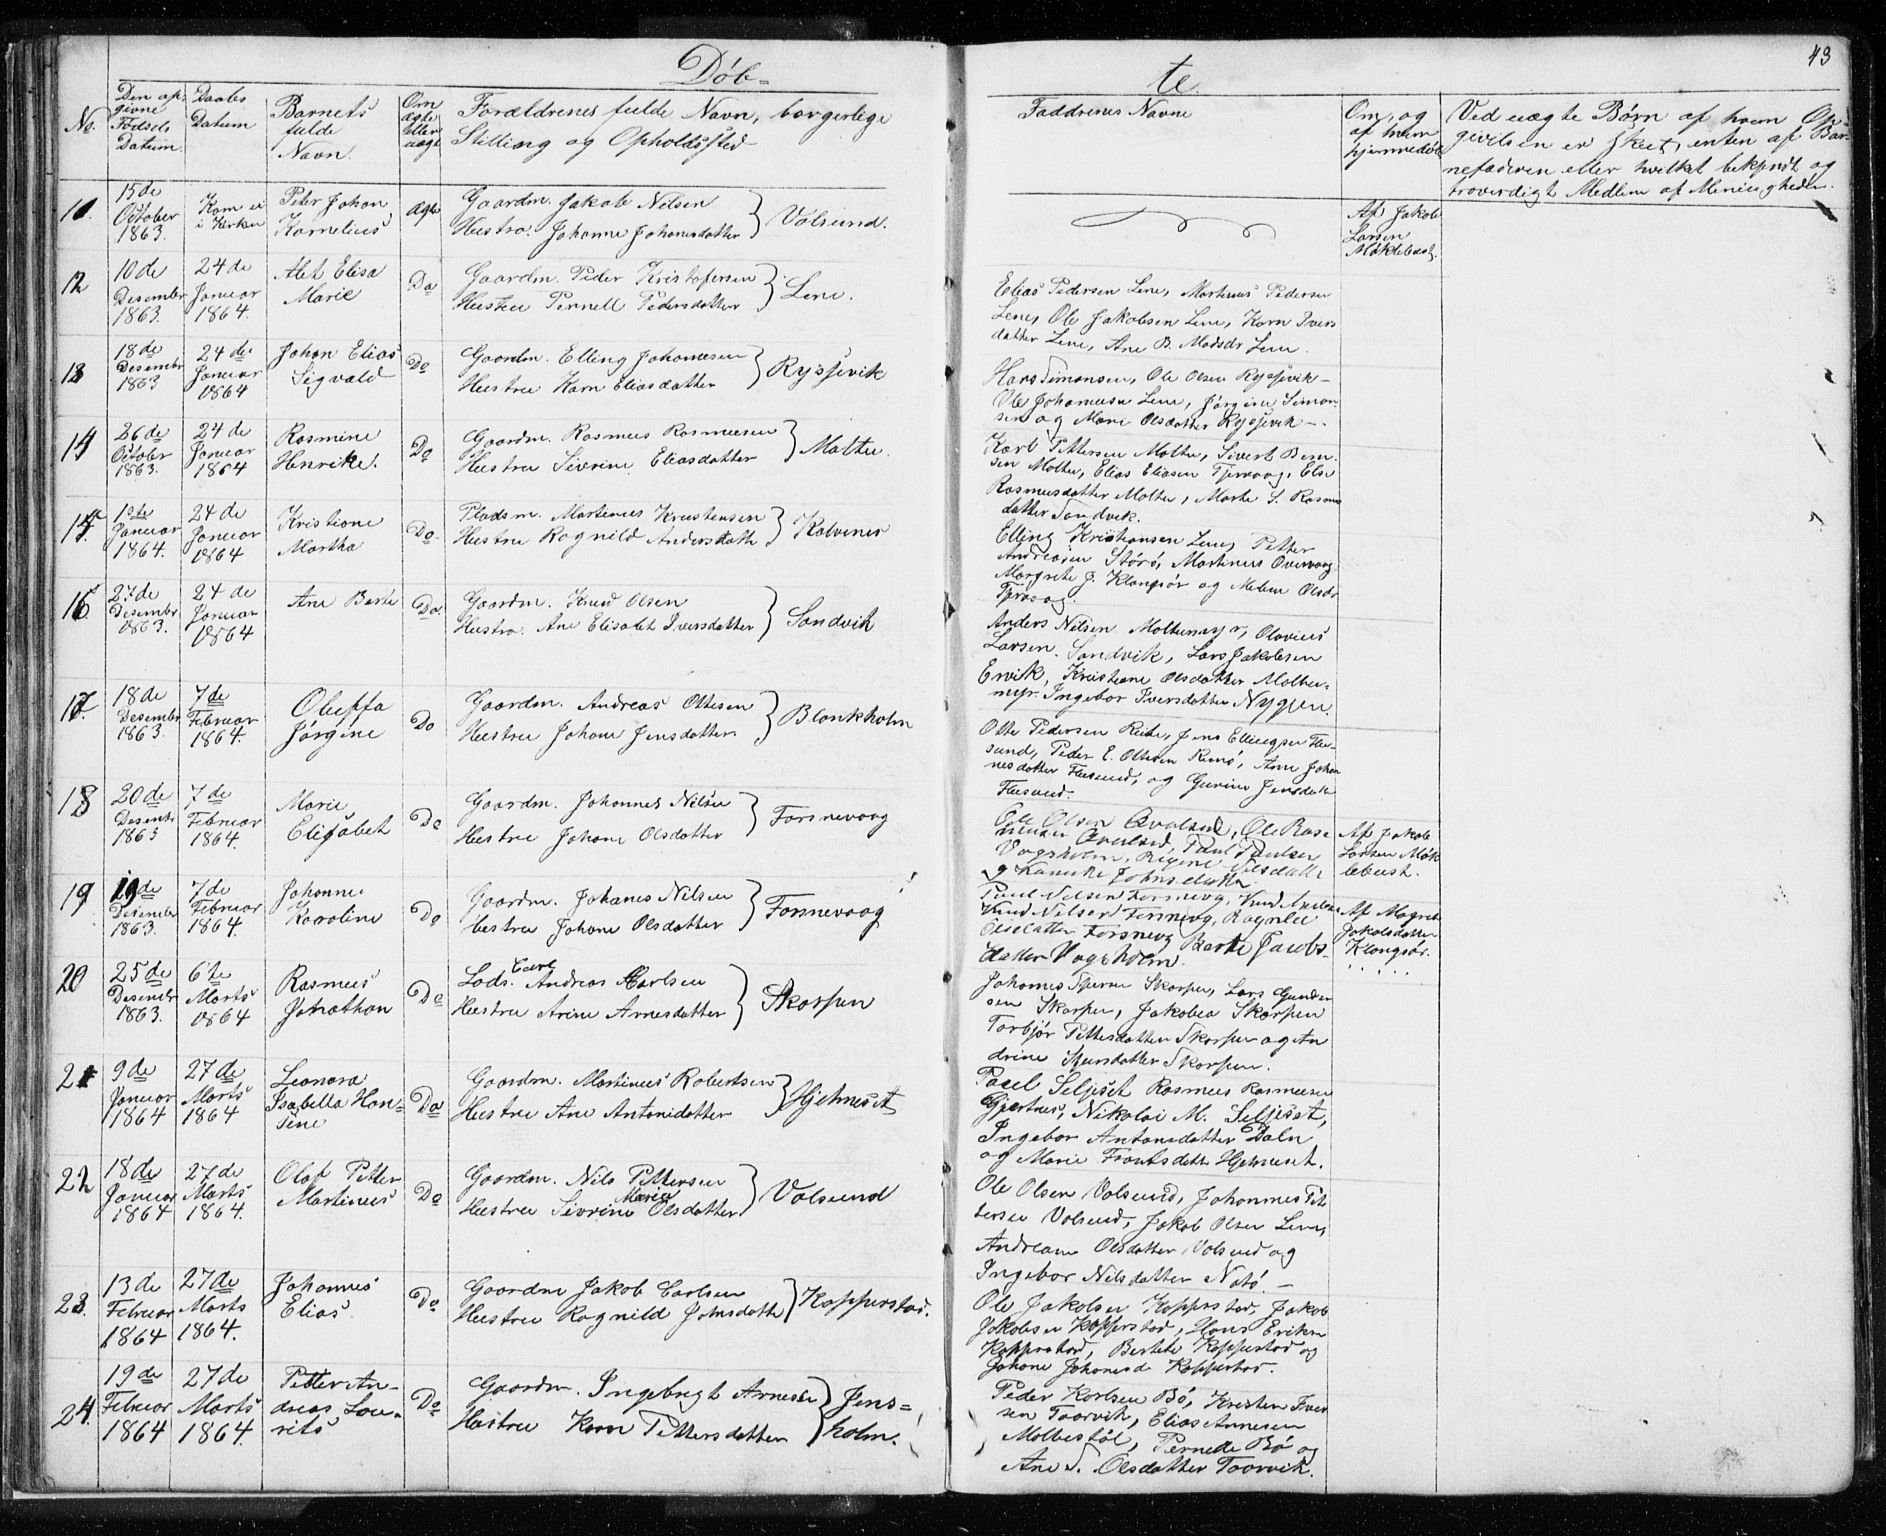 43
Døb-
te
No.
Den op-
givne
Fødsels
Datum.
Daabs
Datum
Barnets
fulde
Navn.
Om
ægte
eller
uægte
Forældrenes fulde Navn, borgerlige
Stilling og Opholdssted
Faddrenes Navne
Om, og
af hvem
hjemmedøbt
Ved uægte Børn af hvem Op-
givelsen er skeet, enten af Bar-
nefaderen eller hvilket bekjendt og
troverdigt Medlem af Menigheden.
11.
15de
October
1863.
Kom ei
i Kirken
Peter Johan
Kornelius
ægte
Gaardm. Jakob Nilsen
Hustro. Johanne Johannesdatter
Volsund.
Af Jakob
Larsen
Møklebust.
12
10de
Desember
1863.
24de
Januar
1864.
Alet Elisa
Marie
Do
Gaardm. Peder Kristofersen
Hustru Pernell Pedersdatter
Lene.
Elias Pedersen Lene, Martinus Pedersen
Lene, Ole Jakobsen Lene, Karn Ivers
datter Lene, Ane B. Madsdr Lene.
13
18de
Desembr
1863
24de
Januar
1864
Johan Elias
Sigvald
Do
Gaardm. Elling Johannesen
Hustru Karn Eliasdatter
Rysjevik
Hans Simonsen, Ole Olsen Rysjevik-
Ole Johannesen Lene, Jørgine Simon-
sen og Marie Olsdatter Rysjevik-.
14
26de
October
1863.
24de
Januar
1864
Rasmine
Henrike.
Do
Gaardm. Rasmus Rasmusen
Hustru Siverine Eliasdatter
Moltu.
Karl Pettersen Moltu, Sivert
sen Moltu, Elias Eliasen Tjervaag, Else
Rasmusdatter Moltu, Marte S. Rasmus
datter Sandvik.
15
1ste
Januar
1864.
24de
Januar
1864
Kristiane
Martha
Do
Pladsm. Martinus Kristensen
Hustru Ragnild Andersdatter
Kalvenes
Elling Kristiansen Lene, Petter
Andreasen Störö, Martinus Overvaag
Margrete J. Klongsör og Meline Olsdr
Tjervaag.
16
27de
Desembr
1863.
24de
Januar
1864
Ane Berte
Do.
Gaardm. Knud Olsen
Hustro. Ane Elisabet Iversdatter
Sandvik
Anders Nilsen Moltumyr, Olavius
Larsen Sandvik, Lars Jakobsen
Ervik, Kristiane Olsdatter Moltu-
myr. Ingebor Iversdatter Nygjen.
17
18de
Desembr
1863.
7de
Februar
1864.
Oluffa
Jørgine
Do
Gaardm. Andreas Ottesen
Hustru Johane Jensdatter.
Blankholm
Otte Pedersen Runde, Jens Ellingsen Flu-
sund, Peder E. Ottesen Remö, Ane Johan
nesdatter Flusund, og Gurine Jensdat
Flusund.
18
20de
Desembr
1863
7de
Februar
1864.
Marie
Elisabet
Do
Gaardm. Johannes Nilsen
Hustru Johane Olsdatter
Forsnevaag
Ole Olsen Qvalsund, Ole Ras-
musen Qvalsund, Paul Paulsen
Vogsholm, Regine Nilsdatter
og Hansike Johnsdatter
Af Jakob
Larsen Møk
lebust.
19
19de
Desember
1863.
7de
Februar
1864.
Johanne
Karoline
Do
Gaardm. Johanes Nilsen
Hustru Johane Olsdatter
Forsnevaag
Paul Nilsen Forsnevg, Knud
Knud Nilsen Forsnevg, Ragnild
Olsdatter Forsnevg Berte Jacobs-
datter Vogsholm.
Af Magrete
Jakobsdatter
Klongsør.
20
25de
Desember
1863.
6te
Marts
1864
Rasmus
Johathan
Do
Carl
Lods. Andreas Carlsen
Hustru Arine Arnesdatter
Skorpen
Johannes Skorpen, Lars Gunder
sen Skorpen, Jakobea Skorpen
Torbjør Pettersdatter Skorpen og An
drine datter Skorpen.
21
9de
Januar
1864
27de
Marts
1864
Leonora
Isabella Han-
sine
Do
Gaardm. Martinus Robertsen
Hustru Ane Antonidatter
Hjelmeset
Paul Seljeset Rasmus Rasmusen
Gjertnes, Nikolai M. Seljeset,
Ingebor Antonsdatter Daln
og Marie Frantsdatt Hjelmeset.
22
18de
Januar
1864
27de
Marts
1864.
Olaf Petter
Martinus
Do
Gaardm. Nils Pettersen
Maria
Hustru Sivrine Olsdatter
Volsund
Ole Olsen Volsund, Johannes Pet
tersen Volsund, Jakob Olsen Lene,
Andreane Olsdatter Volsund og
Ingebor Nilsdatter Notö.-
23.
13de
Februar
1864
27de
Marts
1864.
Johannes
Elias.
Do
Gaardm Jakob Carlsen
Hustru Ragnild Johnsdatte
Kopperstad.
Ole Jakobsen Kopperstad, Jakob
Jakobsen Kopperstad, Hans Eriksen
Kopperstad, Bertete Kopperstad og
Johane Johanesd Kopperstad.
24.
19de
Februar
1864
27de
Marts
1864.
Petter An-
dreas Lau-
rits
Do
Gaardm. Ingebrigt Arnesen
Hustru Karn Pettersdatter
Jens-
holm.
Peder Korlsen Bö, Kristen Iver
sen Toorvik, Elias Annesen
Moltestöl, Pernede Bö og
Ane S. Olsdatter Toorvik.